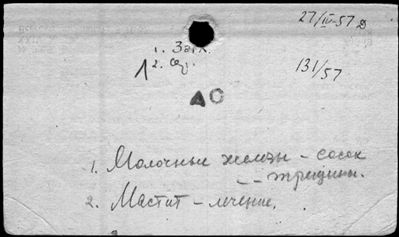 27/IV-57 Д
1. Загл.
1 2. Сод.
131/57
АС
1. Молочные железы – сосок
– – трещины.
2. Мастит – лечение.